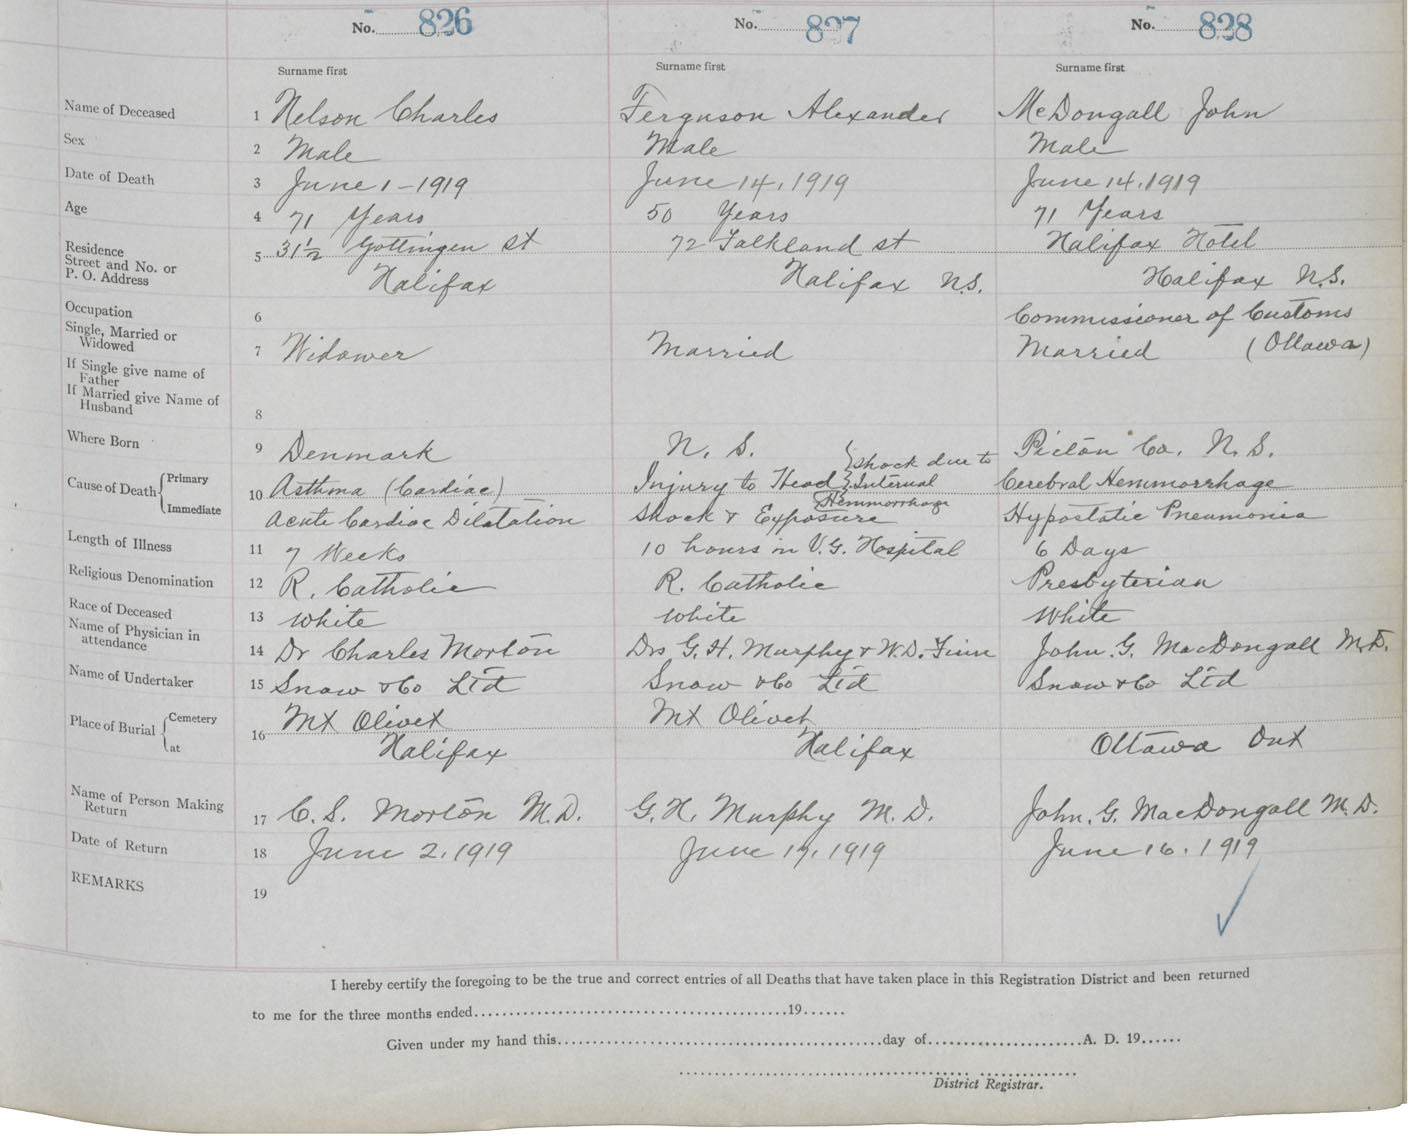 No. 826 No. 827 No. 828
Surname first Surname first Surname first
Name of Deceased 1 Nelson Charles Ferguson Alexander McDougall John
Sex 2 Male Male Male
Date of Death 3 June 1-1919 June 14, 1919 June 14, 1919
Age 4 71 Years 50 Years 71 Years
Residence 5 31½ Gottingen St 72 Falkland St Halifax Hotel
Street and No. or
P. O. Address Halifax Halifax N.S. Halifax N.S.
Occupation 6 Commissioner of Customs
Single, Married or
Widowed 7 Widower Married Married (Ottawa)
If Single give name of
Father
If Married give Name of
Husband 8
Where Born 9 Denmark N. S. Pictou Co. N. S.
Cause of Death Primary 10 Asthma (Cardiac) Injury to Head shock due to Internal Hemmorrhage Cerebral Hemmorrhage
Immediate Acute Cardiac Dilatation Shock & Exposure Hypostatic Pneumonia
Length of Illness 11 7 Weeks 10 hours in V.G. Hospital 6 Days
Religious Denomination 12 R. Catholic R. Catholic Presbyterian
Race of Deceased 13 White White White
Name of Physician in
attendance 14 Dr Charles Morton Drs G. H. Murphy & W.D. Finn John. G. MacDougall M.D.
Name of Undertaker 15 Snow & Co Ltd Snow & Co Ltd Snow & Co Ltd
Place of Burial Cemetery 16 Mt Olivet Mt Olivet
at Halifax Halifax Ottawa Ont
Name of Person Making
Return 17 C. S. Morton M.D. G. H. Murphy M. D. John. G. MacDougall M.D.
Date of Return 18 June 2, 1919 June 17, 1919 June 16. 1919
REMARKS 19
I hereby certify the foregoing to be the true and correct entries of all Deaths that have taken place in this Registration District and been returned
to me for the three months ended.....19......
Given under my hand this.....day of.....A. D. 19......
District Registrar.